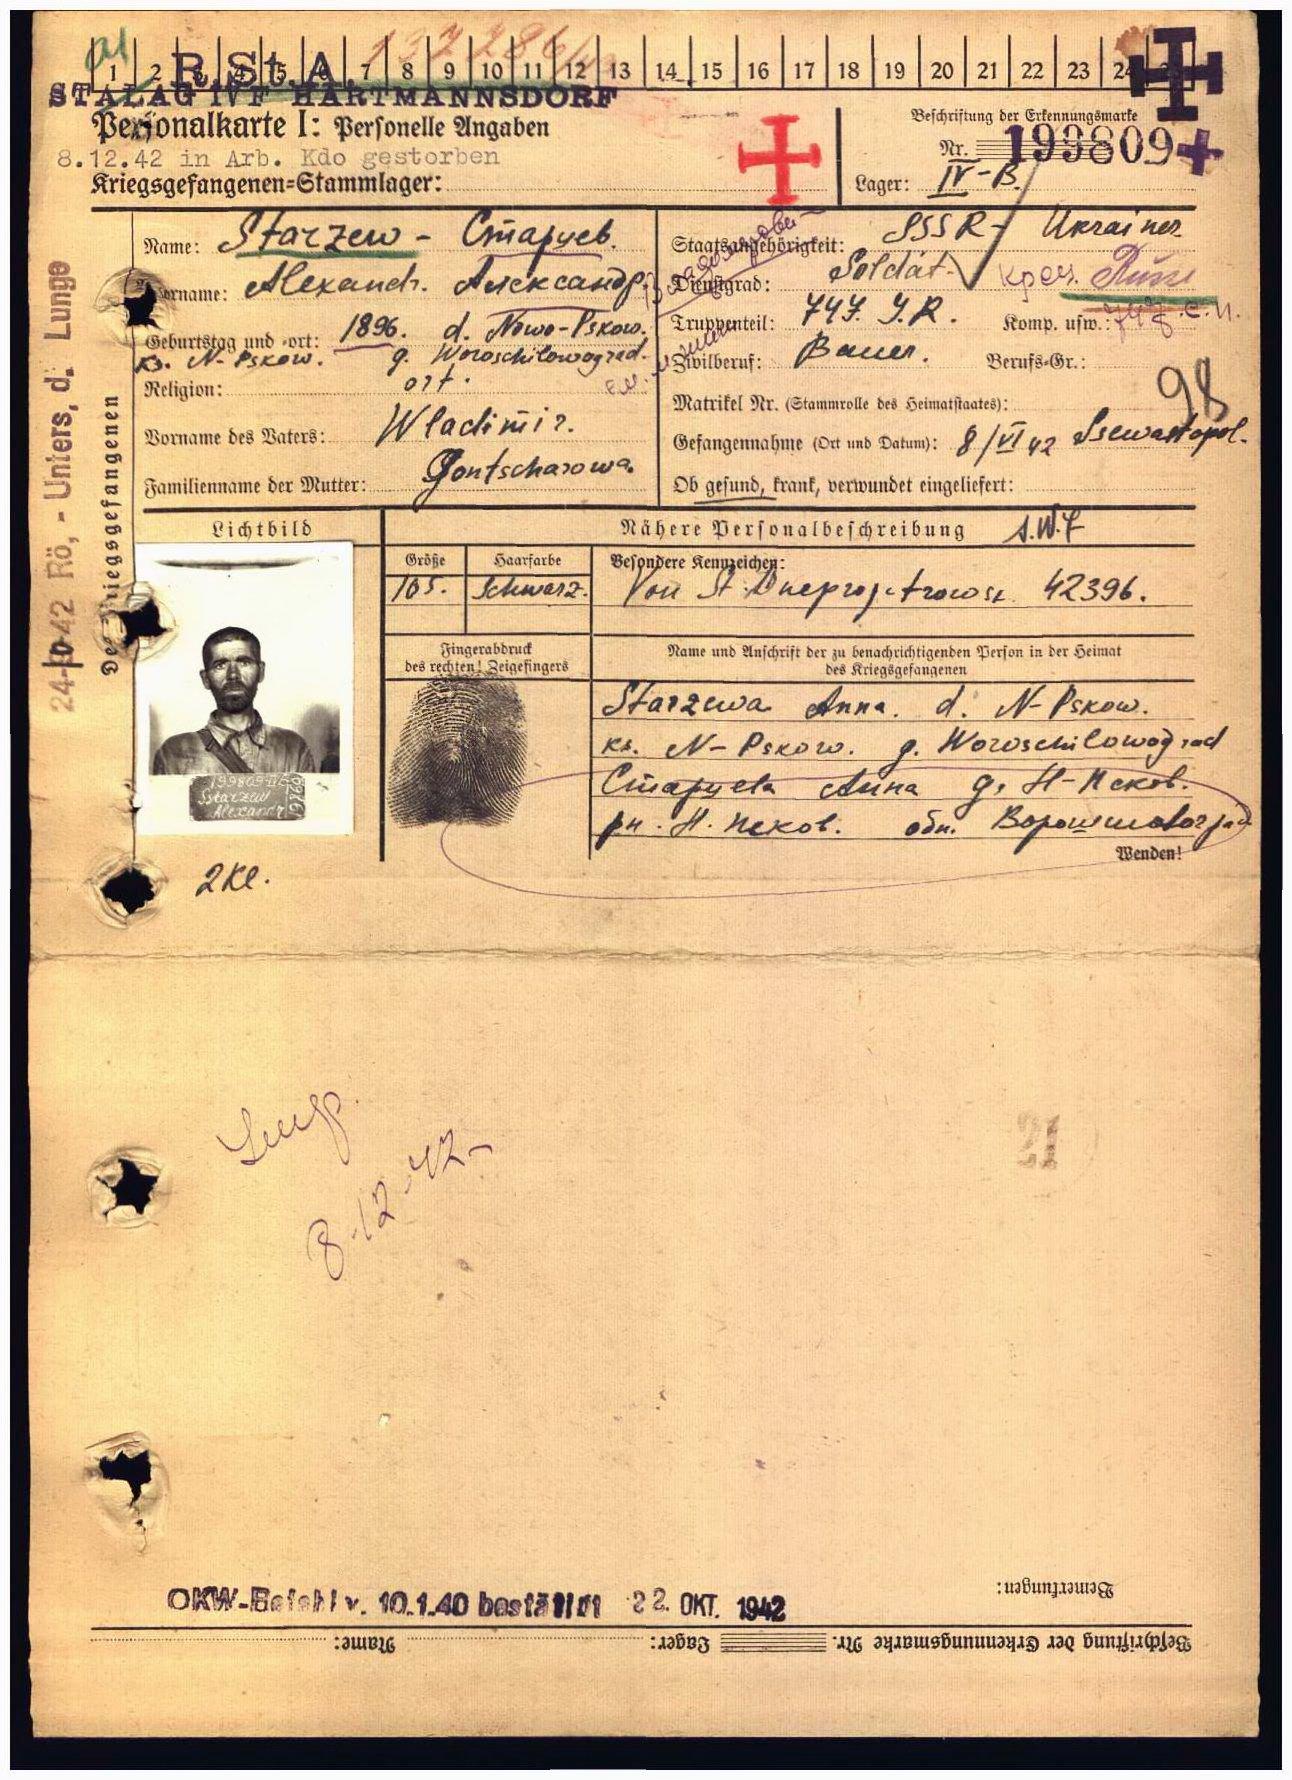 1 2 3 4 5 6 7 8 9 10 11 12 13 14 15 16 17 18 19 20 21 22 23 24
R.St.A.
STALAG IV F HARTMANNSDORF
Personalkarte I: Personelle Angaben
8.12.42 in Arb. Kdo gestorben
Kriegsgefangenen-Stammlager:
Beschriftung der Erkennungsmarke
Nr. 199809
Lager: IV-B.
Name: Starzew - Старцев.
Vorname: Alexandr. Александр.
Geburtstag und -ort: 1896. d. Nowo-Pskow.
Ks. N-Pskow. g. Woroschilowograd.
Religion: ort.
Vorname des Vaters: Wladimir.
Familienname der Mutter: Gontscharowa.
Staatsangehörigkeit: SSSR - Ukrainer
Dienstgrad: Soldat крест. Russe
Truppenteil: 747. J.R. Komp. usw.: 747 с.п.
Zivilberuf: Bauer. Berufs-Gr.:
98
Matrikel Nr. (Stammrolle des Heimatstaates):
Gefangennahme (Ort und Datum): 8/VI 42 Ssewastopol.
Ob gesund, krank, verwundet eingeliefert:
Des Kriegsgefangenen
Unters, d. Lunge
Lichtbild
Nähere Personalbeschreibung
Größe Haarfarbe Besondere Kennzeichen:
165. Schwarz. Von St. Dnepropetrowsk 42396.
Fingerabdruck
des rechten! Zeigefingers
Name und Anschrift der zu benachrichtigenden Person in der Heimat
des Kriegsgefangenen
Starzewa Anna. d. N-Pskow.
ks. N-Pskow. g. Woroschilowograd
Старцева Анна д. Н-Псков.
рн. Н. Псков. обл. Ворошиловград
Wenden!
199809-IVB
Starzew
Alexandr
2 Kl.
8.12.42
21
OKW-Befehl v. 10.1.40 bestätigt 22. OKT. 1942
Bemerkungen:
Name: Lager: Beschriftung der Erkennungsmarke Nr.